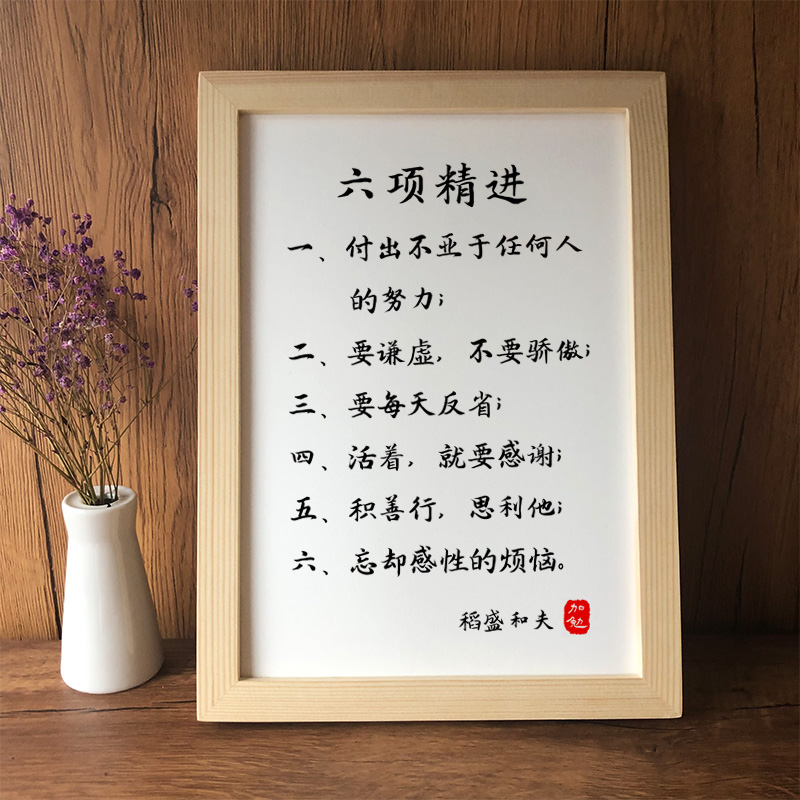 六项精进
一、付出不亚于任何人
的努力；
二、要谦虚，不要骄傲；
三、要每天反省；
四、活着，就要感谢；
五、积善行，思利他；
六、忘却感性的烦恼。
稻盛和夫
加勉